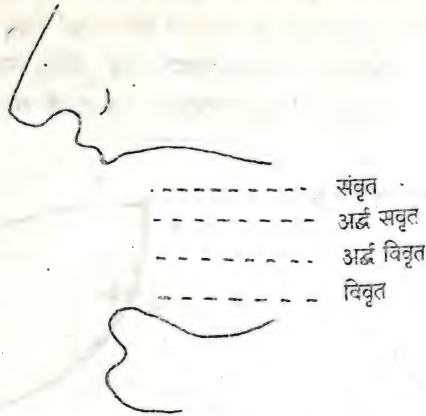 संवृत
अर्द्ध सवृत
अर्द्ध विवृत
विवृत